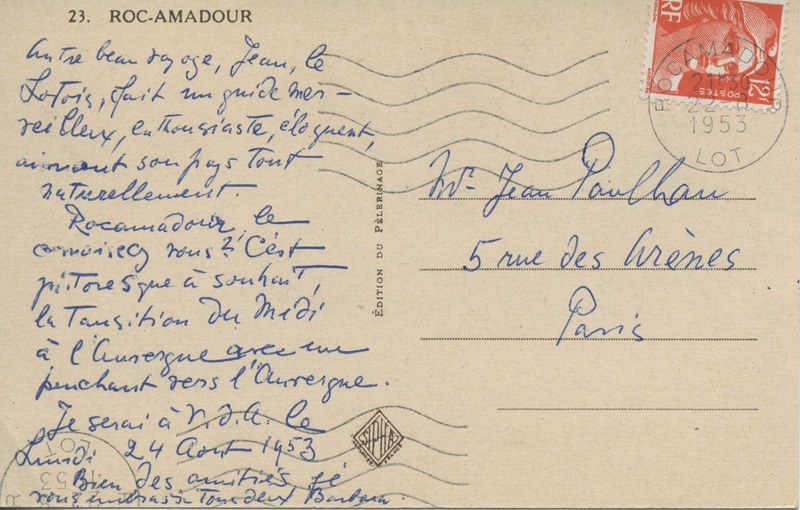 23. ROC-AMADOUR
Notre beau voyage, Jean, le
Lotois, fait un guide mer-
veilleux, enthousiaste, éloquent,
aimant son pays tout
naturellement.
Rocamadour, le
connaissez vous? C'est
pittoresque à souhait,
la Tansition du Midi
à l'Auvergne avec un
penchant vers l'Auvergne.
Je serai à V.d.A. le
Lundi 24 Août 1953
Bien des amitiés, je
vous embrasse tous deux, Barbara.
ÉDITION DU PÈLERINAGE
RF
12f
POSTES
ROCAMADOUR
1953
LOT
Mr Jean Paulhan
5 rue des Arènes
Paris
LOT